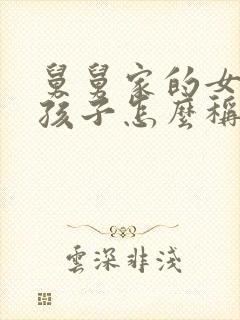 舅舅家的女
孩子怎麼稱
雲深非淺